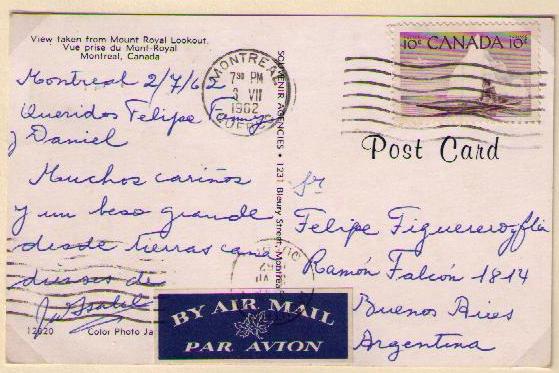 View taken from Mount Royal Lookout.
Vue prise du Mont-Royal
Montreal, Canada
Montreal 2/7/62
Queridos Felipe Fanny
y Daniel
Muchos cariños
y un beso grande
desde tierras cana
dienses de
Isabel
12020 Color Photo Ja
SOUVENIR AGENCIES • 1231 Bleury Street, Montreal
MONTREAL
7 30 PM
3 VII
1962
QUEBEC
10¢ CANADA 10¢
Post Card
Sr
Felipe Figueroa y flia
Ramón Falcón 1814
Buenos Aires
Argentina
BY AIR MAIL
PAR AVION